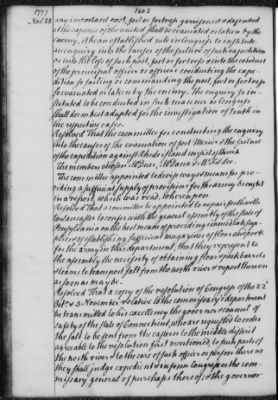 1602
1777
Nov. 28
any important post, fort or fortress garrisoned & defended
at the expence of the united shall be evacuated or taken by the
enemy, it be an established rule in Congress to institute
an enquiry into the causes of the failure of such expedition
or into the loss of such post, fort or fortress & into the conduct
of the principal officer or officers conducting the expe-
dition so failing or commanding the post, fort or fortress
so evacuated or taken by the enemy. The enquiry so in-
stituted to be conducted in such manner as Congress
shall deem best adapted for the investigation of truth in
the respective cases.
Resolved That the committee for conducting the enquiry
into the causes of the evacuation of fort Mercer & the failure
of the expedition against Rhode island consist of
The members chosen
The committee appointed to devise ways & means for pro-
viding a sufficient supply of provisions for the army brought
in a report, which was read; Whereupon
Resolved That a committee be appointed to repair forthwith
to Lancaster to confer with the general assembly of the state of
Pensylvania on the best mean of providing immediate sup-
plies & of establishing sufficient magazines of flour and pork
for the army in this department; that they represent to
the assembly the necessity of obtaining flour & pork barrels
& teams to transport salt from the north river & report thereon
as soon as may be.
Resolved That a copy of the resolution of Congress of the 22d
Octr. & 3 November relative to the commissary's department
be transmitted to his excellency the governor & council of
safety of the state of Connecticut, who are requested to order
the salt to be sent from the eastern to the middle district
agreeable to the resolution first mentioned, to such parts of
the north river & to the care of such officer or person there as
they shall judge expedient; & inform Congress & the com-
missary general of purchases thereof; & the governor